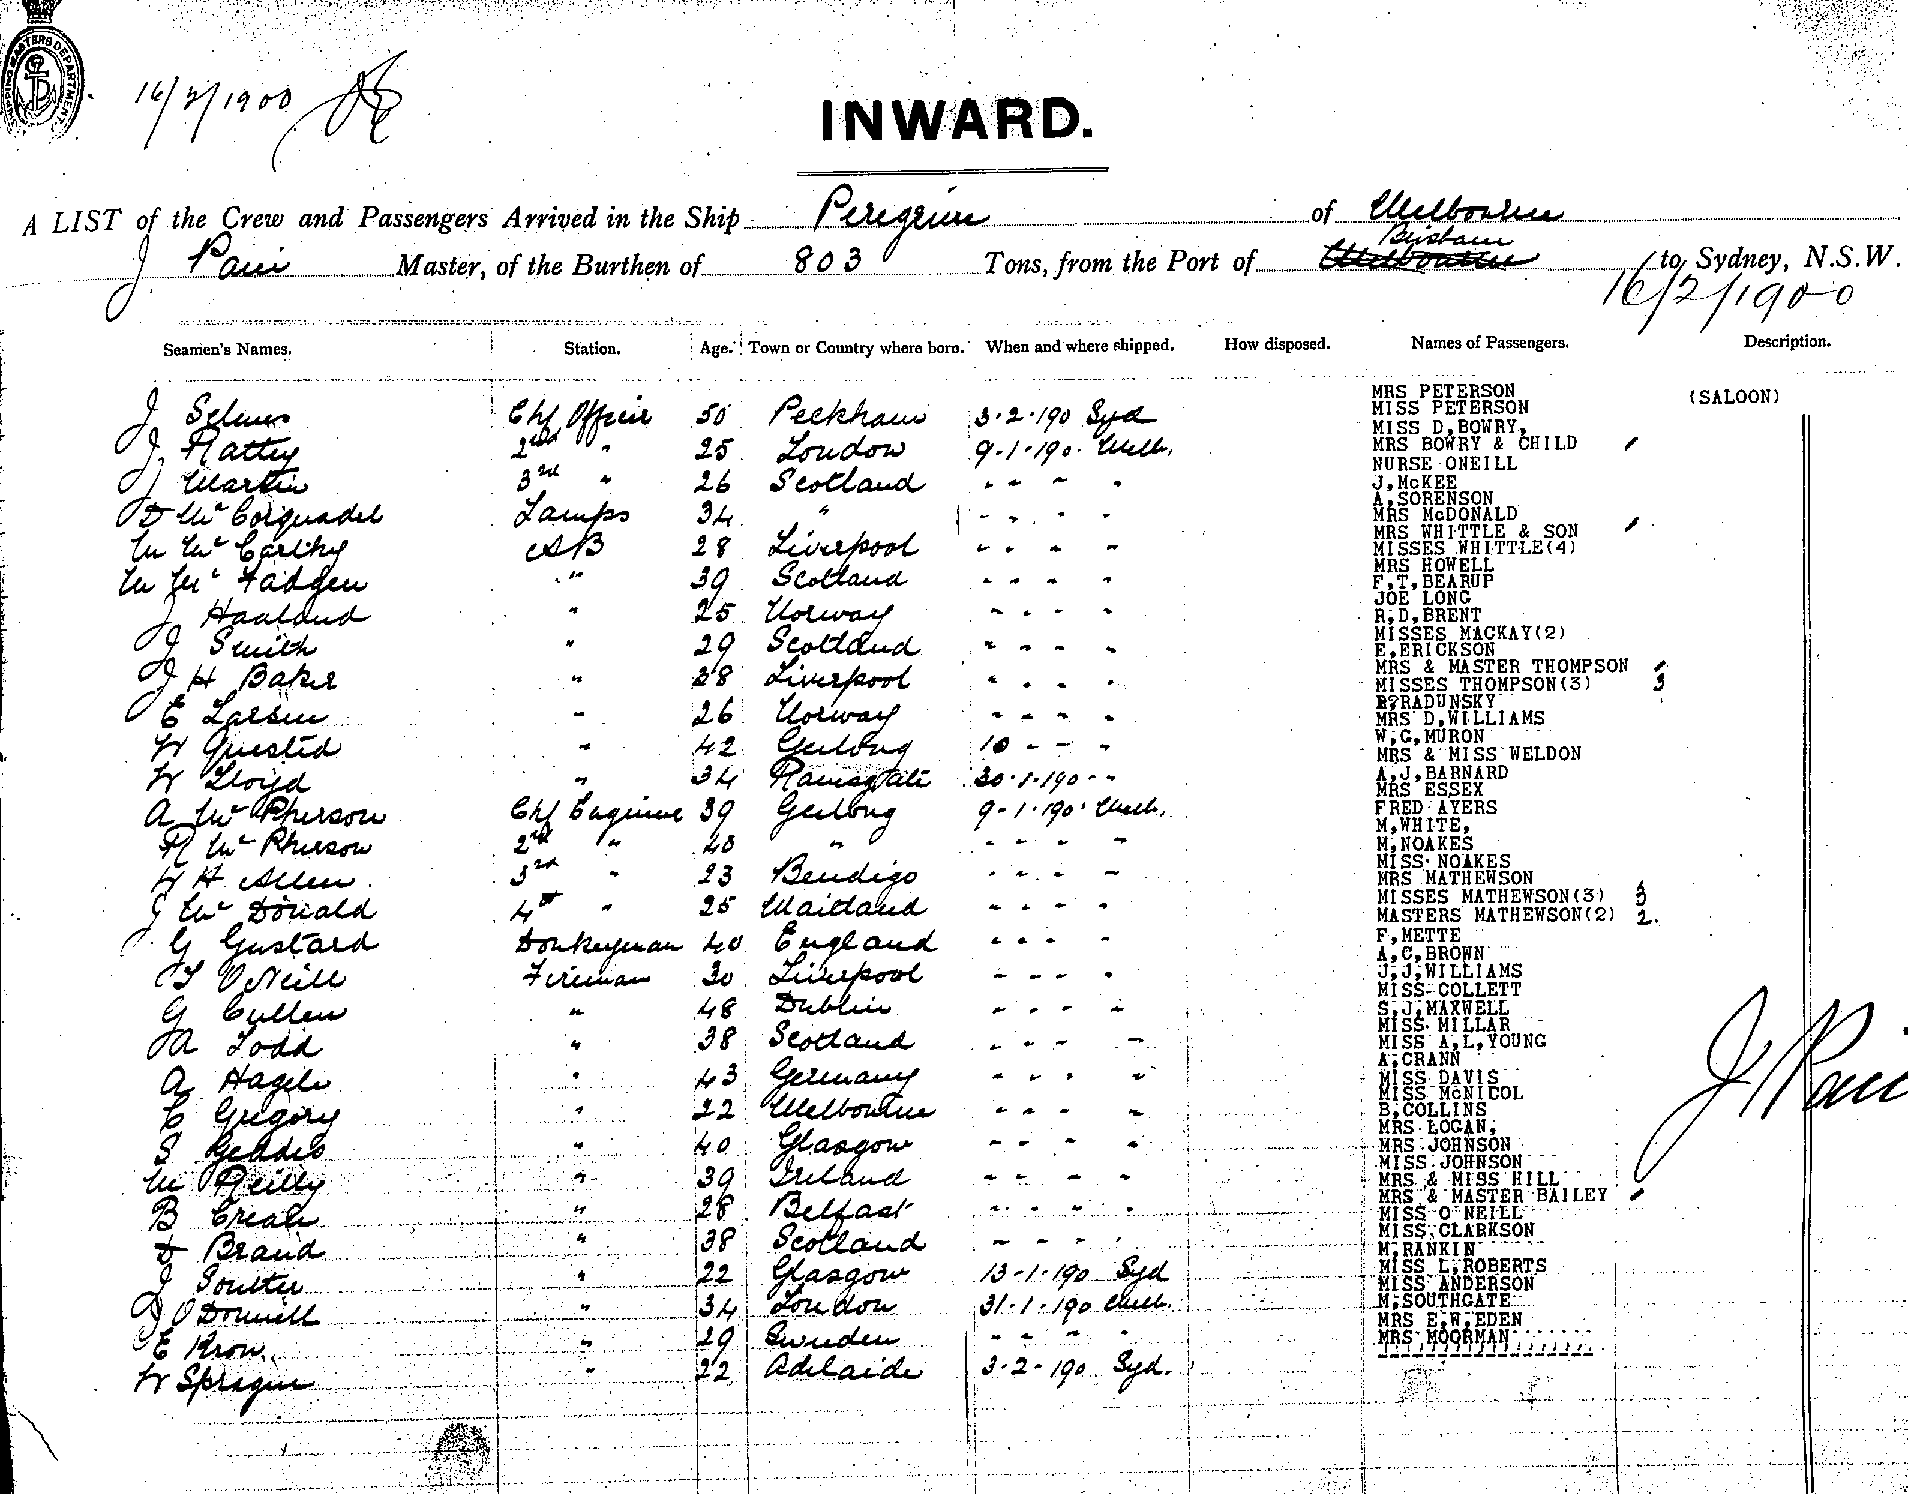 SHIPPING MASTERS DEPARTMENT
16/2/1900
INWARD.
A LIST of the Crew and Passengers Arrived in the Ship Peregrine of Melbourne
J Pain Master, of the Burthen of 803 Tons, from the Port of Melbourne Brisbane to Sydney, N.S.W.
16/2/1900
Seamen's Names. Station. Age. Town or Country where born. When and where shipped. How disposed. Names of Passengers. Description.
J Selmes Chf Officer 50 Peckham 3-2-190 Syd
J Rattey 2nd " 25 London 9-1-190 Melb.
J Martin 3rd " 26 Scotland - - - -
D Mc Corquodel Lamps 34 " - - - -
M Mc Carthy AB 28 Liverpool - - - -
M Mc Fadgen " 39 Scotland - - - -
J Haaland " 25 Norway - - - -
J Smith " 29 Scotland - - - -
J H Baker " 38 Liverpool - - - -
E Larsen " 26 Norway - - - -
W Quested " 42 Geelong 10 - - -
W Lloyd " 34 Ramsgate 30-1-190 - -
A Mc Pherson Chf Engineer 39 Geelong 9-1-190 Melb.
R Mc Pherson 2nd " 40 " - - - -
W H Allen 3rd " 23 Bendigo - - - -
J Mc Donald 4th " 25 Maitland - - - -
G Gustard Donkeyman 40 England - - - -
T O'Neill Fireman 30 Liverpool - - - -
G Cullen " 48 Dublin - - - -
A Todd " 38 Scotland - - - -
A Hagele " 43 Germany - - - -
C Gregory " 22 Melbourne - - - -
S Geddes " 40 Glasgow - - - -
M Reilly " 39 Ireland - - - -
B Crean " 28 Belfast - - - -
D Brand " 38 Scotland - - - -
J Soutter " 22 Glasgow 13-1-190 Syd
J O'Donnell " 34 London 31-1-190 Melb.
E Kron " 29 Sweden - - - -
W Sprague " 22 Adelaide 3-2-190 Syd.
MRS PETERSON (SALOON)
MISS PETERSON
MISS D,BOWRY,
MRS BOWRY & CHILD
NURSE ONEILL
J,McKEE
A,SORENSON
MRS McDONALD
MRS WHITTLE & SON
MISSES WHITTLE(4)
MRS HOWELL
F,T,BEARUP
JOE LONG
R,D,BRENT
MISSES MACKAY(2)
E,ERICKSON
MRS & MASTER THOMPSON
MISSES THOMPSON(3) 3
R?RADUNSKY
MRS D,WILLIAMS
W,G,MURON
MRS & MISS WELDON
A,J,BARNARD
MRS ESSEX
FRED AYERS
M,WHITE,
M,NOAKES
MISS NOAKES
MRS MATHEWSON
MISSES MATHEWSON(3) 3
MASTERS MATHEWSON(2) 2.
F,METTE
A,C,BROWN
J,J,WILLIAMS
MISS COLLETT
S,J,MAXWELL
MISS MILLAR
MISS A,L,YOUNG
A,CRANN
MISS DAVIS
MISS McNICOL
B,COLLINS
MRS LOGAN,
MRS JOHNSON
MISS JOHNSON
MRS & MISS HILL
MRS & MASTER BAILEY
MISS O'NEILL
MISS CLARKSON
M,RANKIN
MISS L,ROBERTS
MISS ANDERSON
M,SOUTHGATE
MRS E,W,EDEN
MRS MOORMAN
J Pain